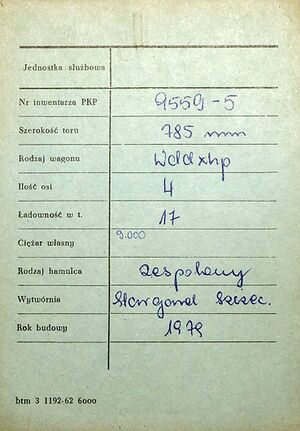 Jednostka służbowa
Nr inwentarza PKP 9559-5
Szerokość toru 785 mm
Rodzaj wagonu Wddxhp
Ilość osi 4
Ładowność w t. 17
Ciężar własny 9.000
Rodzaj hamulca zespolony
Wytwórnia Stargard Szczec.
Rok budowy 1979
btm 3 1192-62 6000